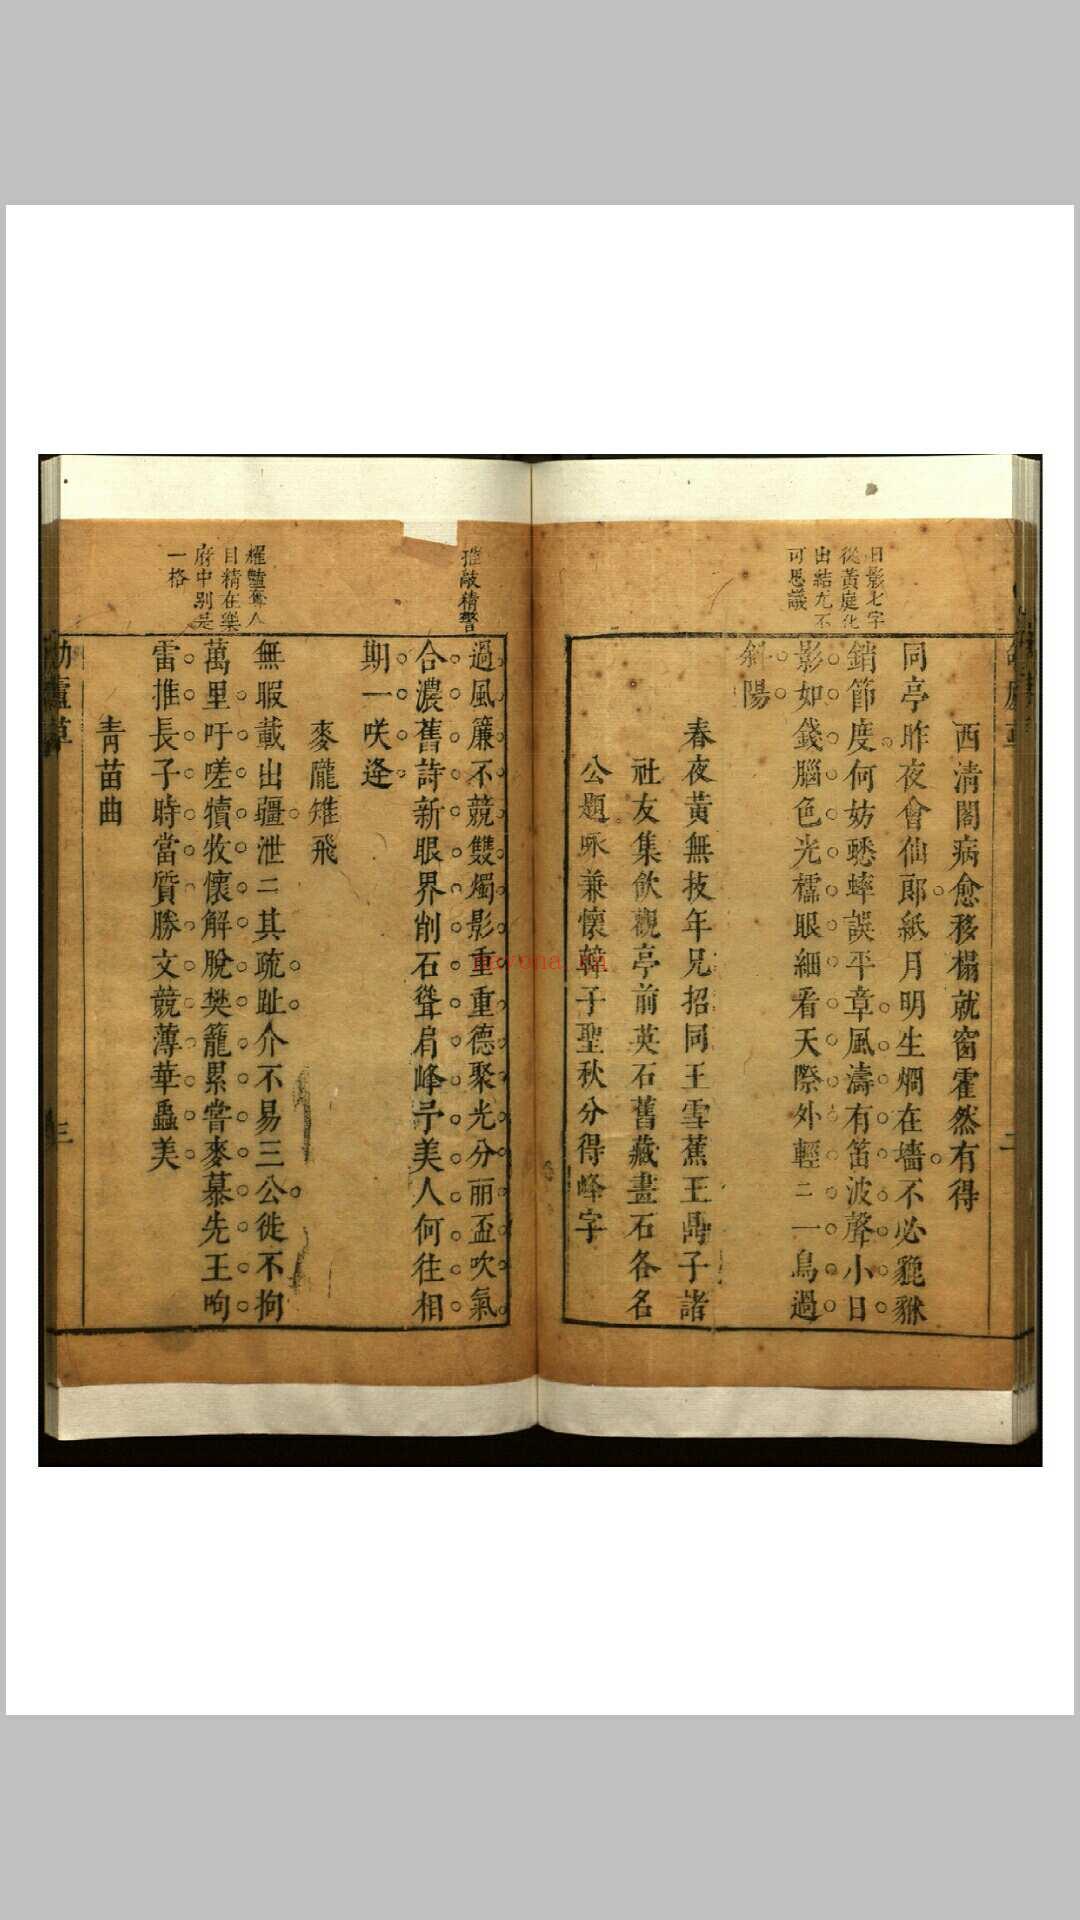 日影七字
從黃庭化
出結尤不
可思議
西清閣病愈移榻就窗霍然有得
同亭昨夜會仙郎紙月明生燗在墻不必貔貅
銷節度何妨蟋蟀誤平章風濤有笛波聲小日
影如錢腦色光檽眼細看天際外輕二一鳥過
斜陽
春夜黃無技年兄招同王雪蕉王鼎子諸
社友集飲觀亭前英石舊藏畫石各名
公題咏兼懷韓子聖秋分得峰字
二
推敲精警
過風簾不競雙燭影重重德聚光分丽盃吹氣
合濃舊詩新眼界削石聳肩峰予美人何往相
期一咲逢
耀艷奪人
目精在樂
府中別是
一格
麥隴雉飛
無暇載出疆泄二其疏趾介不易三公徙不拘
萬里吁嗟犢牧懷解脫樊籠累嘗麥慕先王呴
雷推長子時當質勝文競薄華蟲美
青苗曲
三